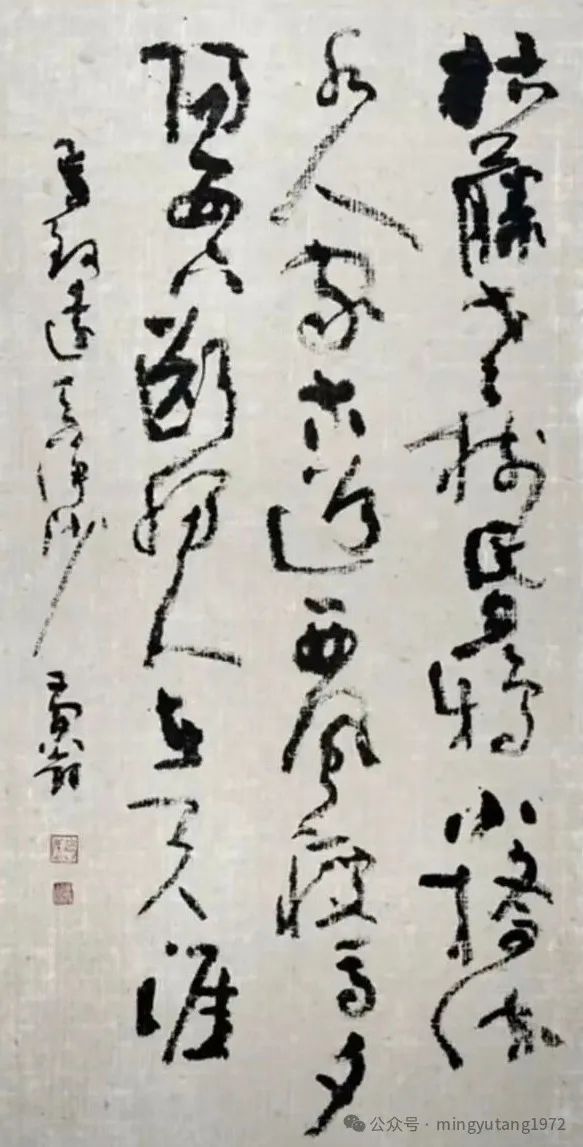 枯藤老树昏鸦小桥流
水人家古道西风瘦马夕
阳西下断肠人在天涯
马致远天净沙
公众号·mingyutang1972